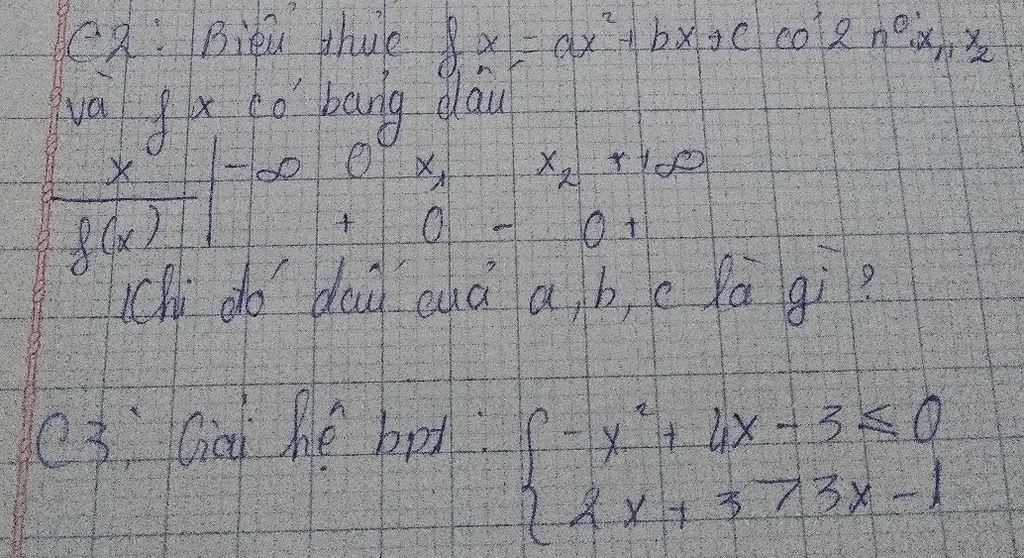 C2: Biểu thức f x = ax² + bx + c có 2 n⁰ x₁, x₂
và f x có bảng dấu
x | -∞ 0 x₁ x₂ + +∞
f(x) | + 0 - 0 +
Khi đó dấu của a, b, c là gì?
C3: Giải hệ bpt: { -x² + 4x - 3 ≤ 0
2x + 3 > 3x - 1